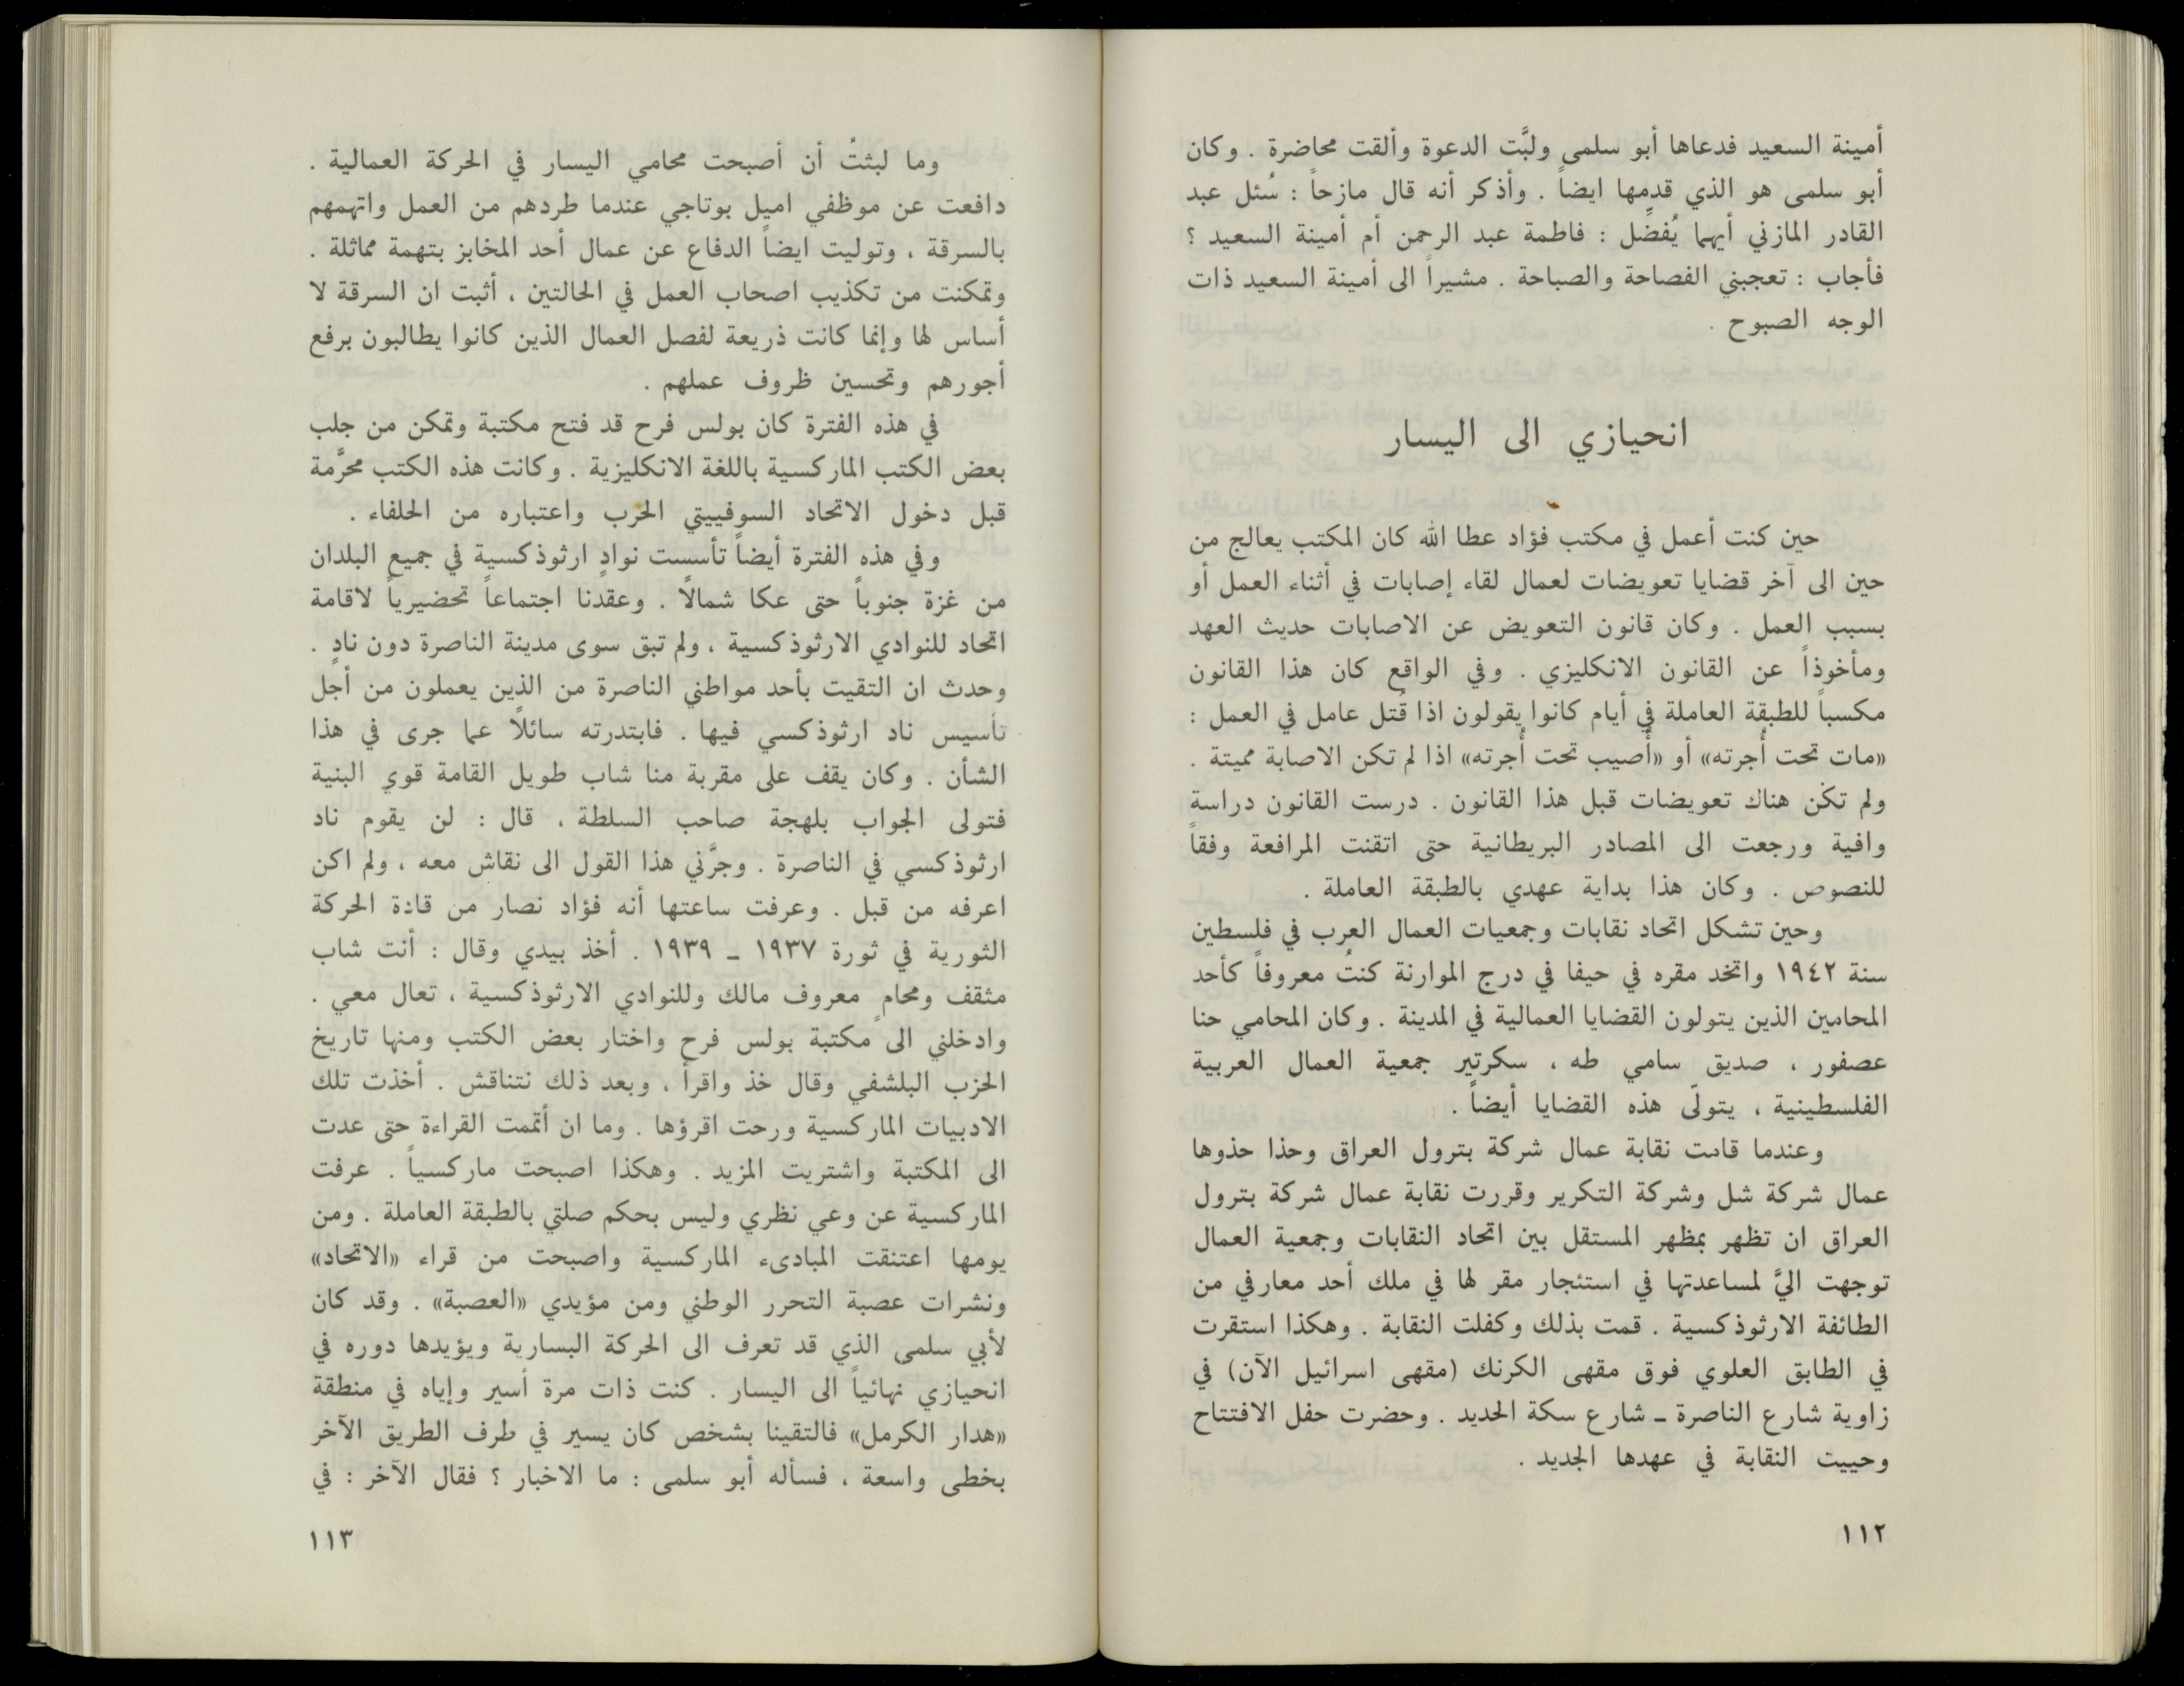 أمينة السعيد فدعاها أبو سلمى ولبَّت الدعوة وألقت محاضرة . وكان
أبو سلمى هو الذي قدمها ايضاً . وأذكر أنه قال مازحاً : سُئل عبد
القادر المازني أيهما يُفضِّل : فاطمة عبد الرحمن أم أمينة السعيد ؟
فأجاب : تعجبني الفصاحة والصباحة . مشيراً الى أمينة السعيد ذات
الوجه الصبوح .
انحيازي الى اليسار
حين كنت أعمل في مكتب فؤاد عطا الله كان المكتب يعالج من
حين الى آخر قضايا تعويضات لعمال لقاء إصابات في أثناء العمل أو
بسبب العمل . وكان قانون التعويض عن الاصابات حديث العهد
ومأخوذاً عن القانون الانكليزي . وفي الواقع كان هذا القانون
مكسباً للطبقة العاملة في أيام كانوا يقولون اذا قُتل عامل في العمل :
«مات تحت أُجرته» أو «أُصيب تحت أُجرته» اذا لم تكن الاصابة مميتة .
ولم تكن هناك تعويضات قبل هذا القانون . درست القانون دراسة
وافية ورجعت الى المصادر البريطانية حتى اتقنت المرافعة وفقاً
للنصوص . وكان هذا بداية عهدي بالطبقة العاملة .
وحين تشكل اتحاد نقابات وجمعيات العمال العرب في فلسطين
سنة ١٩٤٢ واتخد مقره في حيفا في درج الموارنة كنتُ معروفاً كأحد
المحامين الذين يتولون القضايا العمالية في المدينة . وكان المحامي حنا
عصفور ، صديق سامي طه ، سكرتير جمعية العمال العربية
الفلسطينية ، يتولّى هذه القضايا أيضاً .
وعندما قامت نقابة عمال شركة بترول العراق وحذا حذوها
عمال شركة شل وشركة التكرير وقررت نقابة عمال شركة بترول
العراق ان تظهر بمظهر المستقل بين اتحاد النقابات وجمعية العمال
توجهت اليَّ لمساعدتها في استئجار مقر لها في ملك أحد معارفي من
الطائفة الارثوذكسية . قمت بذلك وكفلت النقابة . وهكذا استقرت
في الطابق العلوي فوق مقهى الكرنك (مقهى اسرائيل الآن) في
زاوية شارع الناصرة ـ شارع سكة الحديد . وحضرت حفل الافتتاح
وحييت النقابة في عهدها الجديد .
١١٢
وما لبثتُ أن أصبحت محامي اليسار في الحركة العمالية .
دافعت عن موظفي اميل بوتاجي عندما طردهم من العمل واتهمهم
بالسرقة ، وتوليت ايضاً الدفاع عن عمال أحد المخابز بتهمة مماثلة .
وتمكنت من تكذيب اصحاب العمل في الحالتين ، أثبت ان السرقة لا
أساس لها وإنما كانت ذريعة لفصل العمال الذين كانوا يطالبون برفع
أجورهم وتحسين ظروف عملهم .
في هذه الفترة كان بولس فرح قد فتح مكتبة وتمكن من جلب
بعض الكتب الماركسية باللغة الانكليزية . وكانت هذه الكتب محرَّمة
قبل دخول الاتحاد السوفييتي الحرب واعتباره من الحلفاء .
وفي هذه الفترة أيضاً تأسست نوادٍ ارثوذكسية في جميع البلدان
من غزة جنوباً حتى عكا شمالاً . وعقدنا اجتماعاً تحضيرياً لاقامة
اتحاد للنوادي الارثوذكسية ، ولم تبق سوى مدينة الناصرة دون نادٍ .
وحدث ان التقيت بأحد مواطني الناصرة من الذين يعملون من أجل
تأسيس ناد ارثوذكسي فيها . فابتدرته سائلاً عما جرى في هذا
الشأن . وكان يقف على مقربة منا شاب طويل القامة قوي البنية
فتولى الجواب بلهجة صاحب السلطة ، قال : لن يقوم ناد
ارثوذكسي في الناصرة . وجرَّني هذا القول الى نقاش معه ، ولم اكن
اعرفه من قبل . وعرفت ساعتها أنه فؤاد نصار من قادة الحركة
الثورية في ثورة ١٩٣٧ ـ ١٩٣٩ . أخذ بيدي وقال : أنت شاب
مثقف ومحامٍ معروف مالك وللنوادي الارثوذكسية ، تعال معي .
وادخلني الى مكتبة بولس فرح واختار بعض الكتب ومنها تاريخ
الحزب البلشفي وقال خذ واقرأ ، وبعد ذلك نتناقش . أخذت تلك
الادبيات الماركسية ورحت اقرؤها . وما ان أتممت القراءة حتى عدت
الى المكتبة واشتريت المزيد . وهكذا اصبحت ماركسياً . عرفت
الماركسية عن وعي نظري وليس بحكم صلتي بالطبقة العاملة . ومن
يومها اعتنقت المبادىء الماركسية واصبحت من قراء «الاتحاد»
ونشرات عصبة التحرر الوطني ومن مؤيدي «العصبة» . وقد كان
لأبي سلمى الذي قد تعرف الى الحركة البسارية ويؤيدها دوره في
انحيازي نهائياً الى اليسار . كنت ذات مرة أسير وإياه في منطقة
«هدار الكرمل» فالتقينا بشخص كان يسير في طرف الطريق الآخر
بخطى واسعة ، فسأله أبو سلمى : ما الاخبار ؟ فقال الآخر : في
١١٣